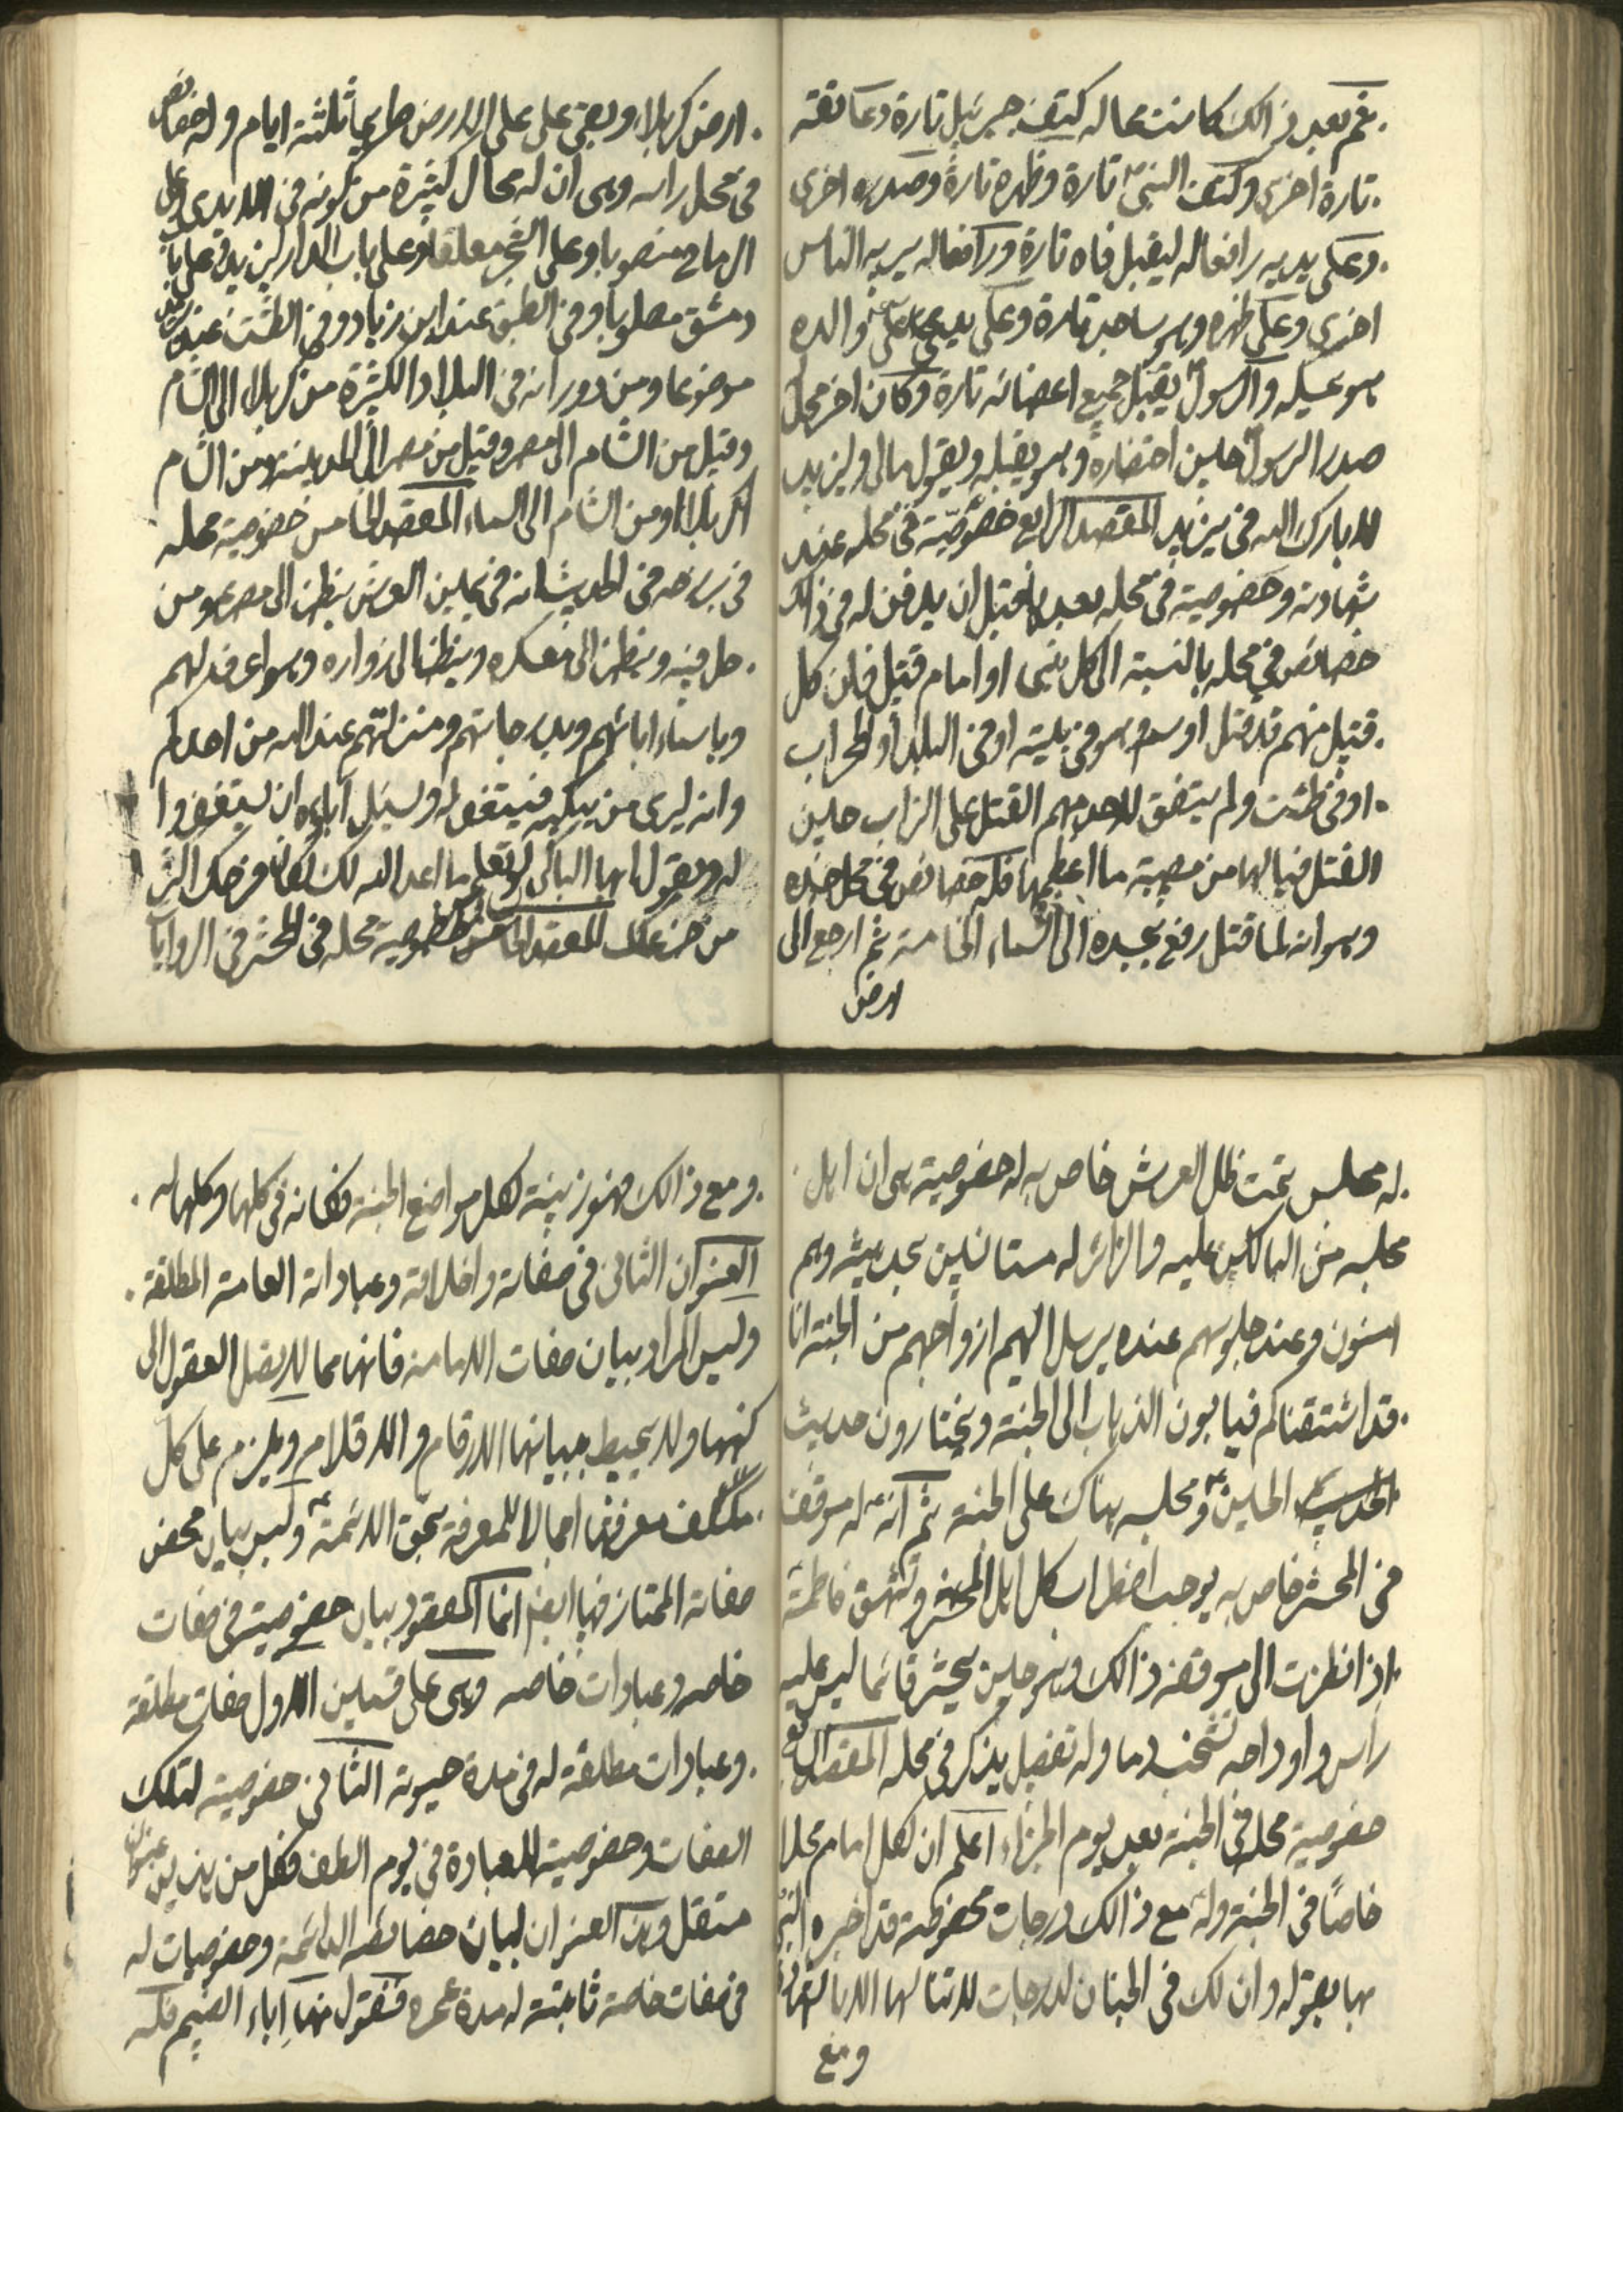 ثم بعد ذالك كانت محاله كتف جبرئيل تارة وعاتقه
تارة اخرى وكتف النبي تارة وظهره تارة وصدره اخرى
وعلى يديه رافعا له ليقبل فاه تارة ورافعا له يريه الناس
اخرى وعلى ظهره وهو ساجد تارة وعلى يدي علي والده
هو يمسكه والرسول يقبل جميع اعضائه تارة وكان اخر محل
صدر الرسول حين احتضاره وهو يقبله ويقول مالي وليزيد
لا بارك الله في يزيد المقصد الرابع خصوصية في محله عند
شهادته وخصوصية في محله بعد ما قتل ان يدفن له في ذالك
خصائص في محله بالنسبة الى كل نبي او امام قتيل فان كل
قتيل منهم قد قتل او سم وهو في بيته او في البلد او المحراب
او في طشت ولم يتفق لاحد منهم القتل على التراب حين
القتل فيالها من مصيبة ما اعظمها فله خصائص في محل جسده
وهو انه لما قتل رفع بجسده الى السماء الخامسة ثم ارجع الى
ارض
ارض كربلاء وبقي على على الارض طريحا ثلثة ايام وله خصائص
في محل راسه وهي ان له محال كثيرة من كونه في الايدي وعلى
الرماح منصوبا وعلى الشجر معلقا وعلى باب الدار ليزيد وعلى باب
دمشق مصلوبا وفي الطبق عند ابن زياد وفي الطشت عند يزيد
موضوعا ومن دورانه في البلاد الكثيرة من كربلا الى الشام
وقيل من الشام الى مصر وقيل من مصر الى المدينة ومن الشام
الى كربلا ومن الشام الى السماء المقصد الخامس خصوصية محله
في برزخه في الحديث انه في يمين العرش ينظر الى مصرعه ومن
حل فيه وينظر الى معسكره وينظر الى زواره وهو اعرف لهم
وباسماء ابائهم وبدرجاتهم ومنزلتهم عند الله من احدكم
وانه ليرى من يبكيه فيستغفر له ويسئل آباءه ان يستغفروا
له ويقول ايها الباكي لو تعلم ما اعد الله لك لكان فرحك اكثر
من حزنك المقصد السادس خصوصية محله في المحشر في الروايات
له مجلس تحت ظل العرش خاص به له خصوصية هي ان اهل
مجلسه من الباكين عليه والزائر له مستانسين بحديثه وهم
امنون وعند جلوسهم عنده يرسل اليهم ازواجهم من الجنة انا
قد اشتقناكم فيابون الذهاب الى الجنة ويختارون حديث
الحسين ومجلسه هناك على الجنة ثم انه له موقف
في المحشر خاص به يوجب اضطراب كل اهل المحشر وتشهق فاطمة
اذا نظرت الى موقفه ذالك وهو حين يحشر قائما ليس عليه
راس واوداجه تشخب دما وله تفصيل يذكر في محله المقصد السابع
خصوصية محله في الجنة بعد يوم الجزاء اعلم ان لكل امام محلا
خاصا في الجنة وله مع ذالك درجات محفوظة قد اخبره النبي
بها بقوله وان لك في الجنان لدرجات لا تنالها الا بالشهادة
ومع
ومع ذالك فهو زينة لكل مواضع الجنة فكانه في كلها وكلها له
العنوان الثاني في صفاته واخلاقه وعباداته العامة المطلقة
وليس المراد ببيان صفات الامامة فانها مما لا يصل العقول الى
كنهها ولا يحيط ببيانها الارقام والاقلام ويلزم على كل
مكلف معرفتها اجمالا للمعرفة بحق الائمة وليس بيان محض
صفاته الممتاز فيها ايضا انما المقصود بيان خصوصيته في صفات
خاصه وعبادات خاصه وهي على قسمين الاول صفات مطلقة
وعبادات مطلقة له في مدة حيوته الثاني خصوصية لتلك
الصفات وخصوصية للعبادة في يوم الطف فكل من هذين عنوان
مستقل وهذا العنوان لبيان خصائصه الدائمة وخصوصيات له
في صفات خاصة ثابتة له مدة عمره فنقول منها اباء الضيم فله